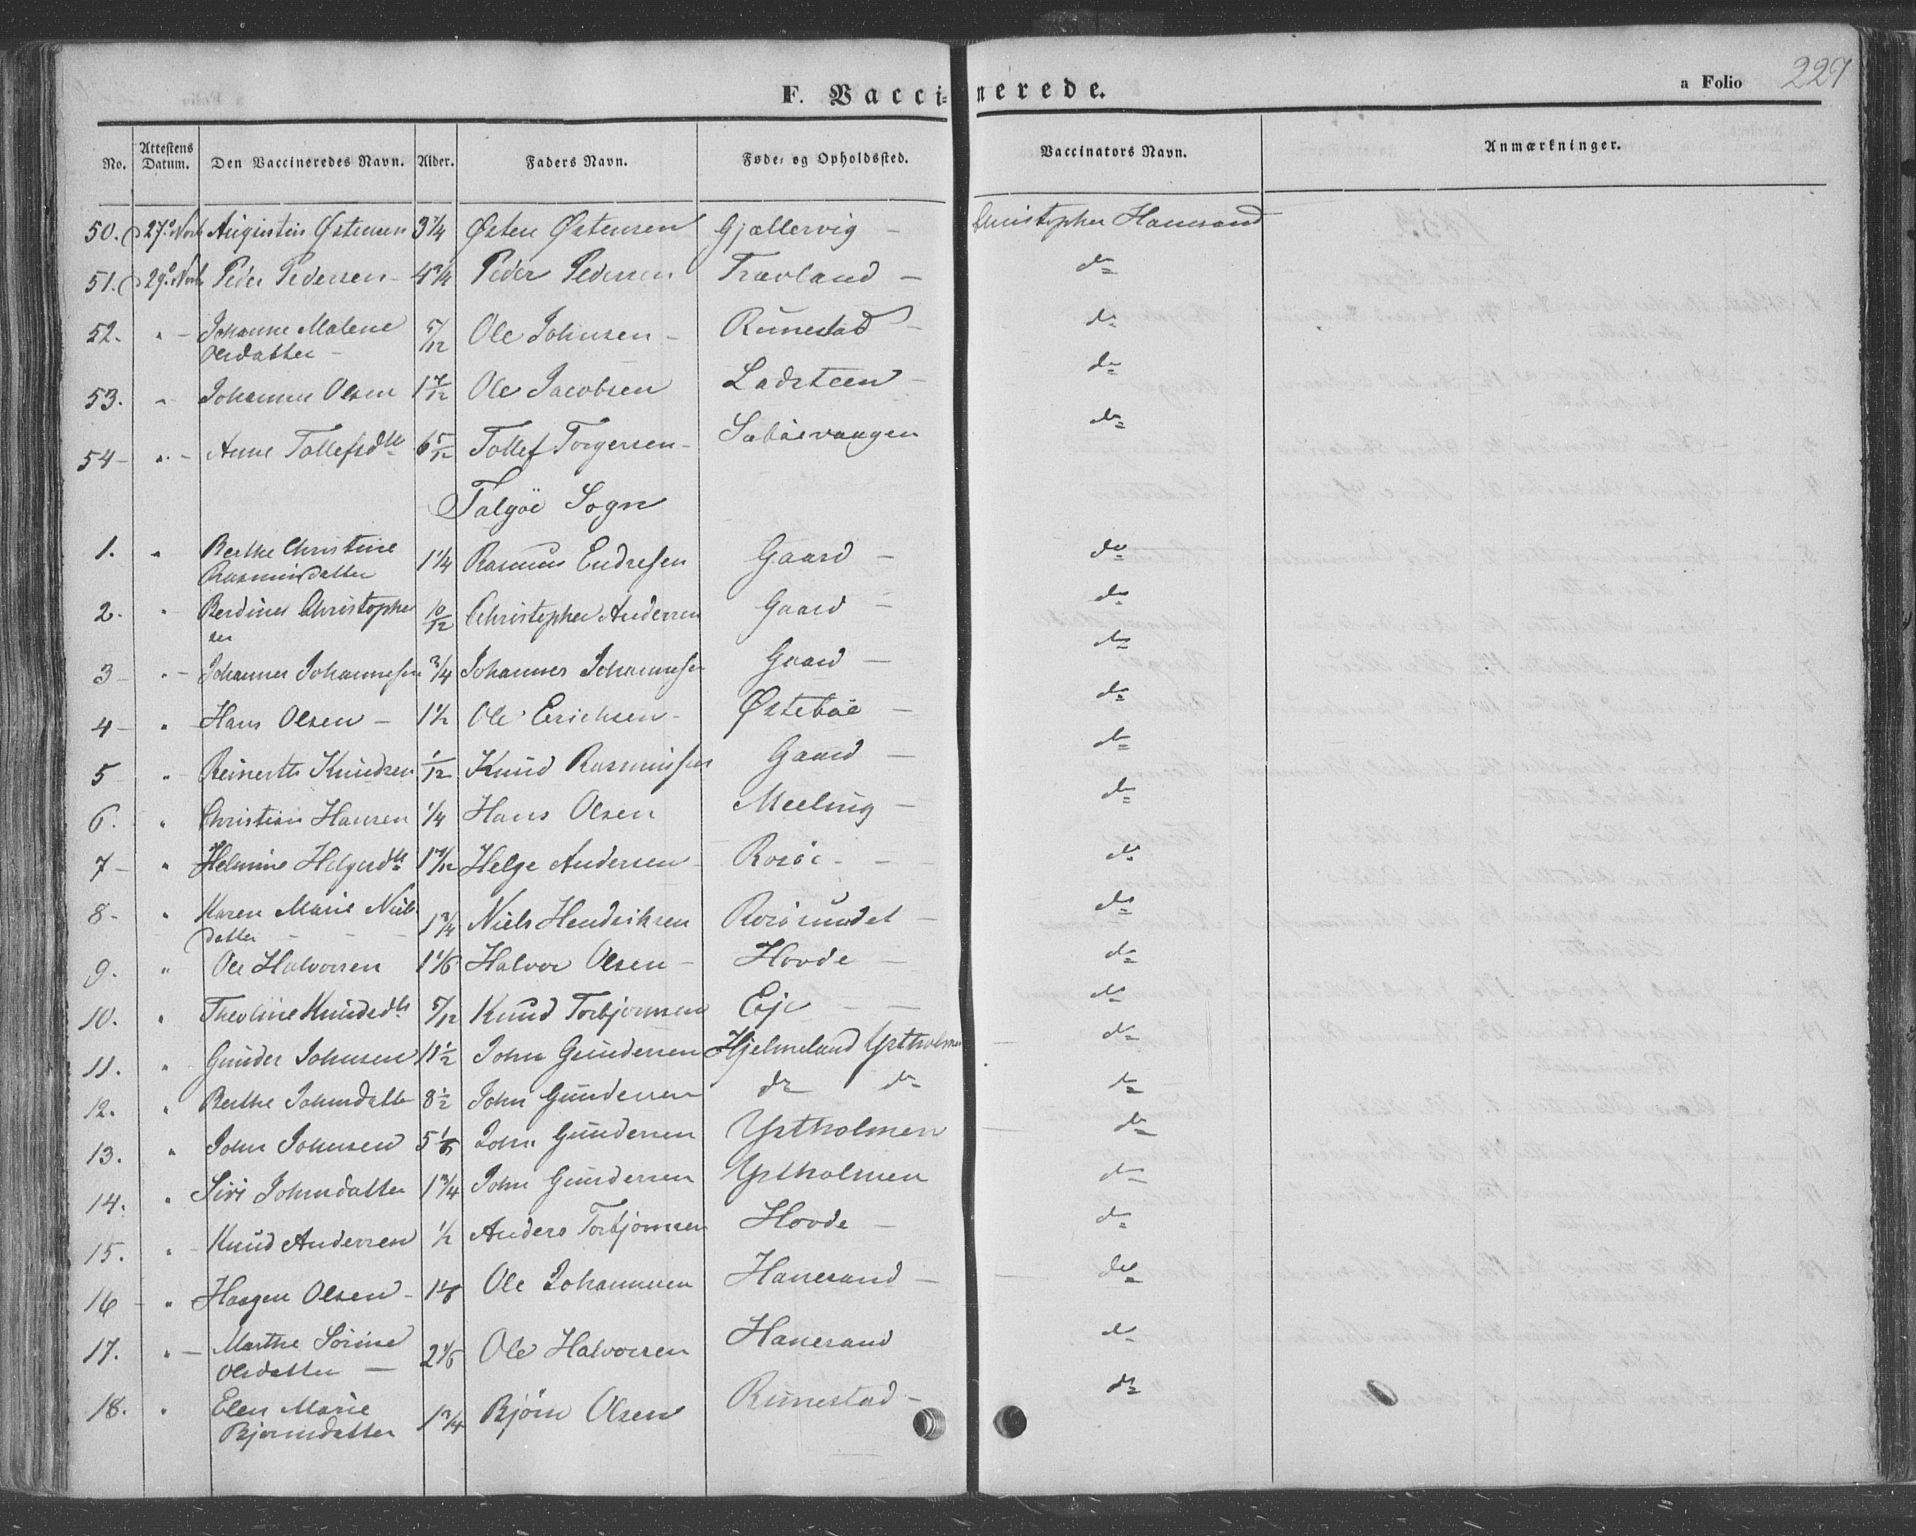 F. Vaccinerede.
a Folio 229
No. Attestens Datum. Den Vaccineredes Navn. Alder. Faders Navn. Føde- og Opholdssted. Vaccinators Navn. Anmærkninger.
50. 27de Novb Augustin Østensen 3 3/4 Østen Østensen Gjællervig - Christopher Hanesand
51. 29de Novb Peder Pedersen - 4 3/4 Peder Pedersen Travland - do
52. " - Johanne Malene
Olsdatter - 5/12 Ole Johnsen - Runestad - do
53. " Johannes Olsen 1 7/12 Ole Jacobsen Ladsteen - do
54 - " - Anne Tollefsdtr 6 5/12 Tollef Torgersen - Sabøevaagen do
Talgöe Sogn
1. " Berthe Christine
Rasmusdatter 1 1/4 Rasmus Endresen Gaard - do
2. " Berdines Christopher
sen 10/12 Christopher Andersen Gaard - do
3 - " - Johannes Johannesen 3/4 Johannes Johannesen Gaard - do
4 - " Hans Olsen - 1 1/2 Ole Erichsen - Østebøe - do
5 " Reinerth Knudsen 1/12 Knud Rasmussen Gaard - do
6. " Christian Hansen 1/4 Hans Olsen Meeling - do
7 - " Helmine Helgesdtr 1 7/12 Helge Andersen - Rosöe - - do
8 - " Karen Marie Niels
datter - - - 1 3/4 Niels Hendriksen Rosösundet - do
9. " Ole Halvorsen 1 1/6 Halvor Olsen - Hovde - do
10. " Theoline Knudsdtr 5/12 Knud Torbjørnsen Eje - - do
11. " Gunder Johnsen 11 1/2 John Gundersen Hjelmeland Ystholmen - do
12. " Berthe Johnsdatter 8 1/2 John Gundersen do do do
13. " John Johnsen 5 1/6 John Gundersen Ystholmen - do
14. " Siri Johnsdatter 1 3/4 John Gundersen Ystholmen - do
15. " Knud Andersen 1/2 Anders Torbjørnsen Hovde - do
16 - " Haagen Olsen - 1 1/6 Ole Johannesen Hanesand - - do
17. " - Marthe Sørine
Olsdatter - 2 1/6 Ole Halvorsen Hanesand do
18. " Elen Marie
Bjørnsdatter 1 3/4 Bjørn Olsen Runestad - do